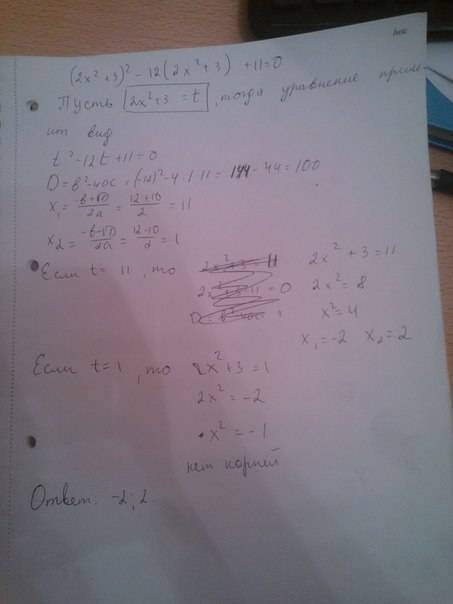 (2x²+3)² - 12(2x²+3) + 11 = 0
Пусть 2x²+3 = t, тогда уравнение приме
ит вид
t² - 12t + 11 = 0
D = b² - 4ac = (-12)² - 4·1·11 = 144 - 44 = 100
x₁ = (-b+√D)/2a = (12+10)/2 = 11
x₂ = (-b-√D)/2a = (12-10)/2 = 1
Если t = 11, то 2x² + 3 = 11
2x² = 8
x² = 4
x₁ = -2 x₂ = 2
Если t = 1, то 2x² + 3 = 1
2x² = -2
x² = -1
нет корней
Ответ. -2; 2